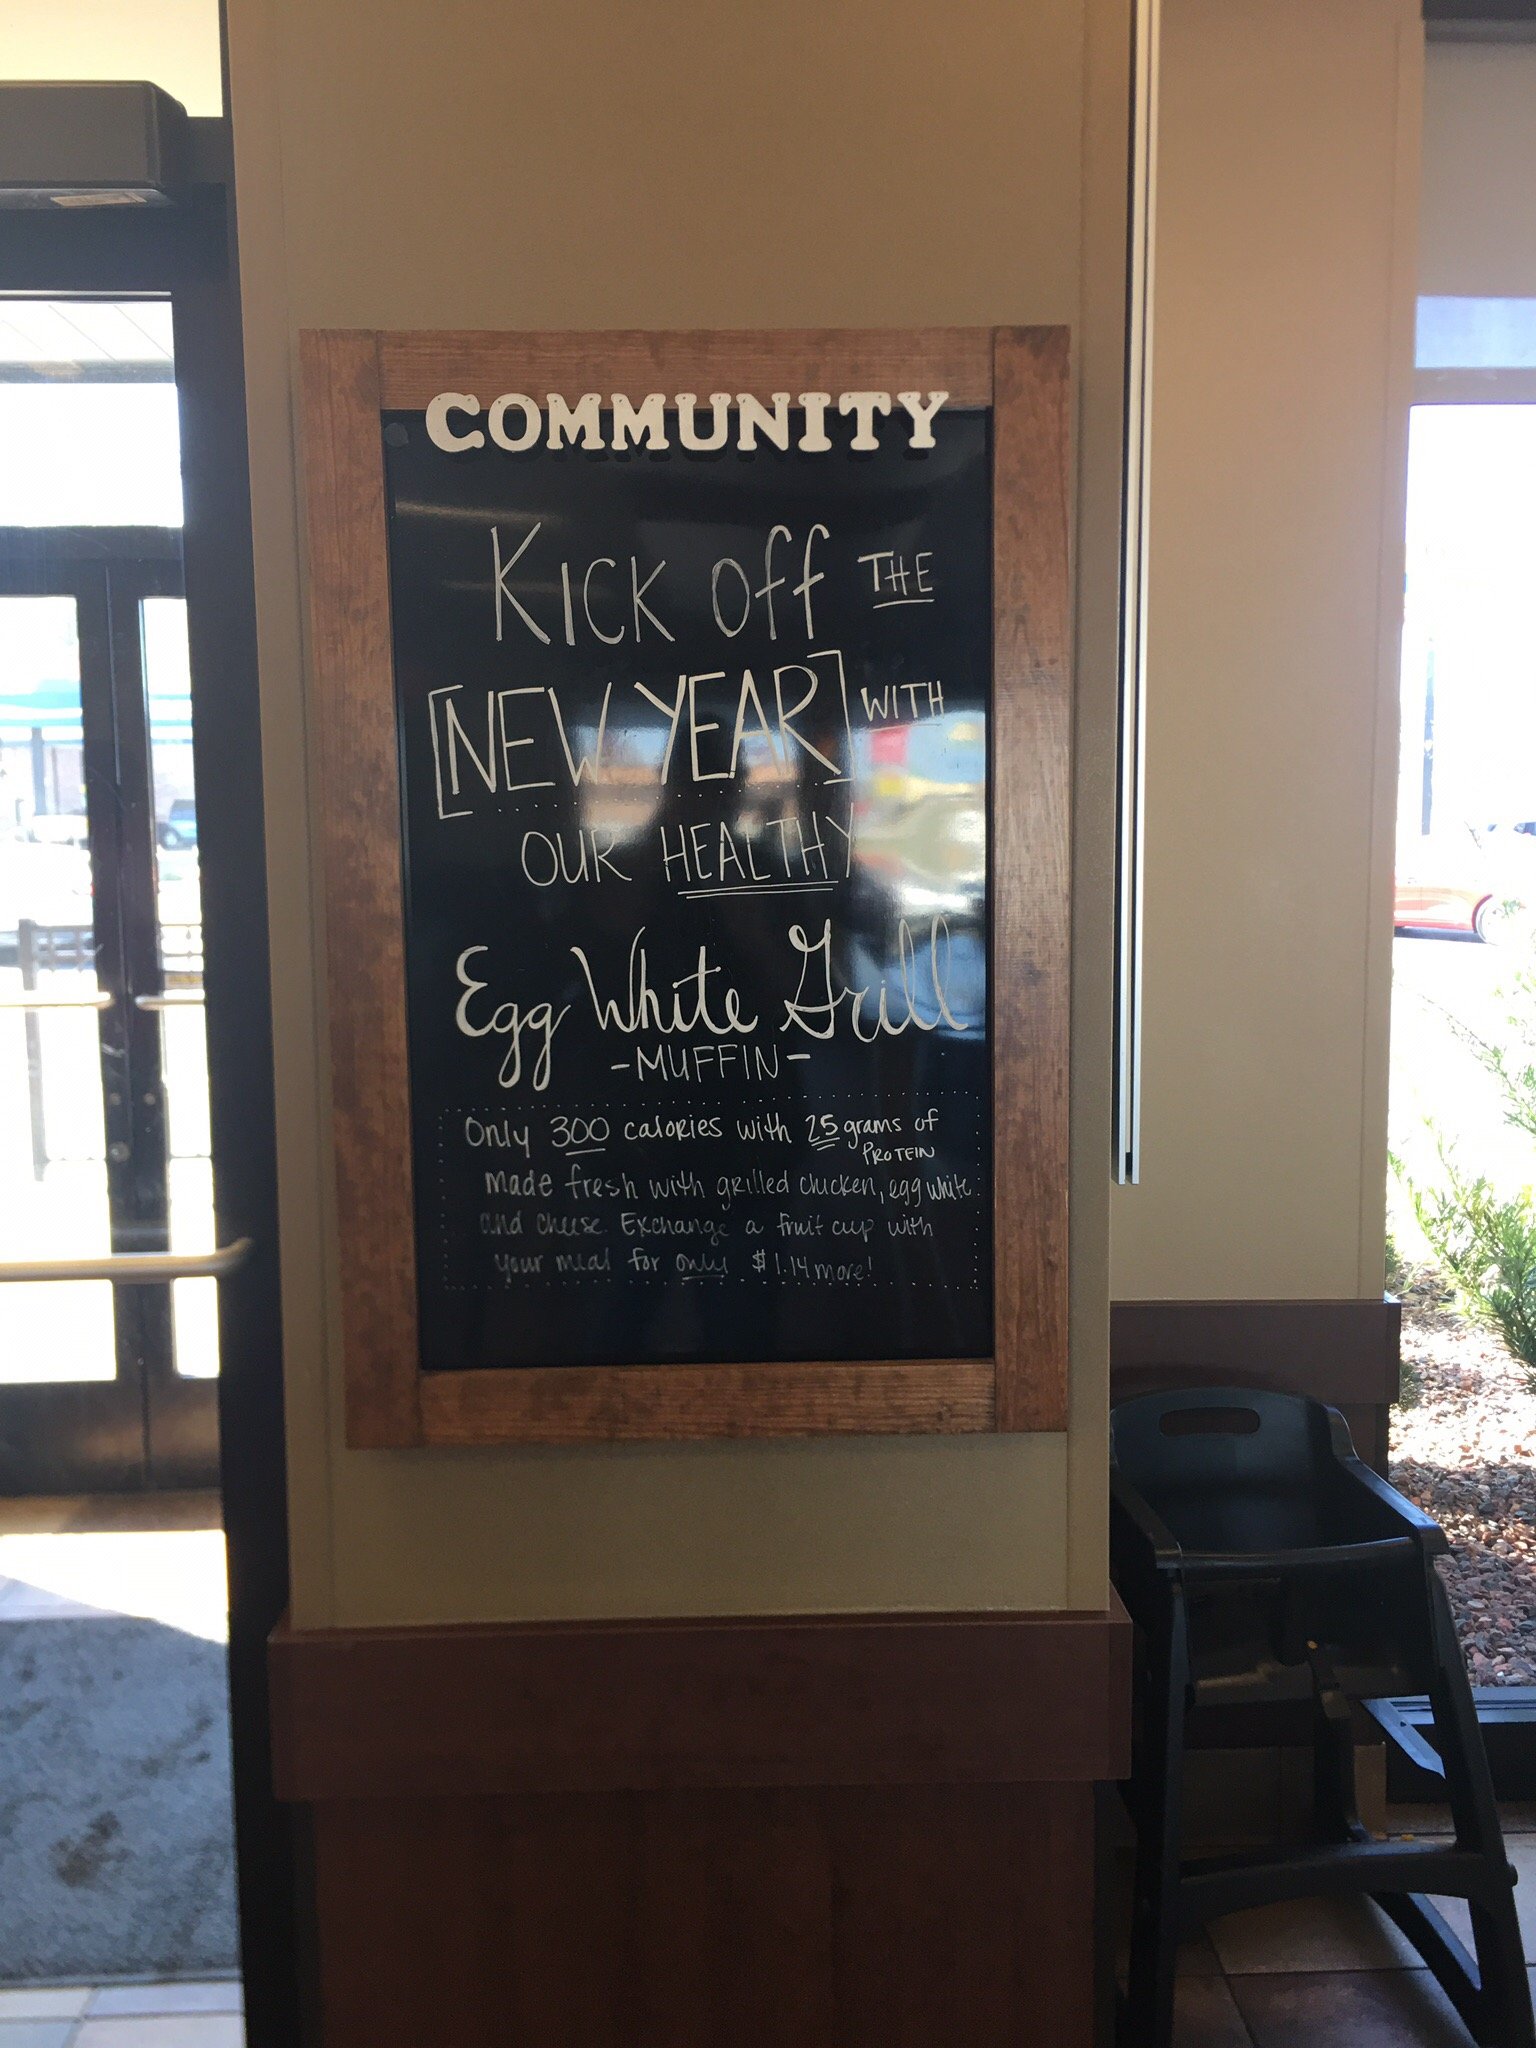 COMMUNITY
KICK Off THE
[NEW YEAR] WITH
OUR HEALTHY
Egg White Grill
-MUFFIN-
Only 300 calories with 25 grams of
PROTEIN
Made fresh with grilled chicken, egg white
and cheese. Exchange a fruit cup with
your meal for only $1.14 more!